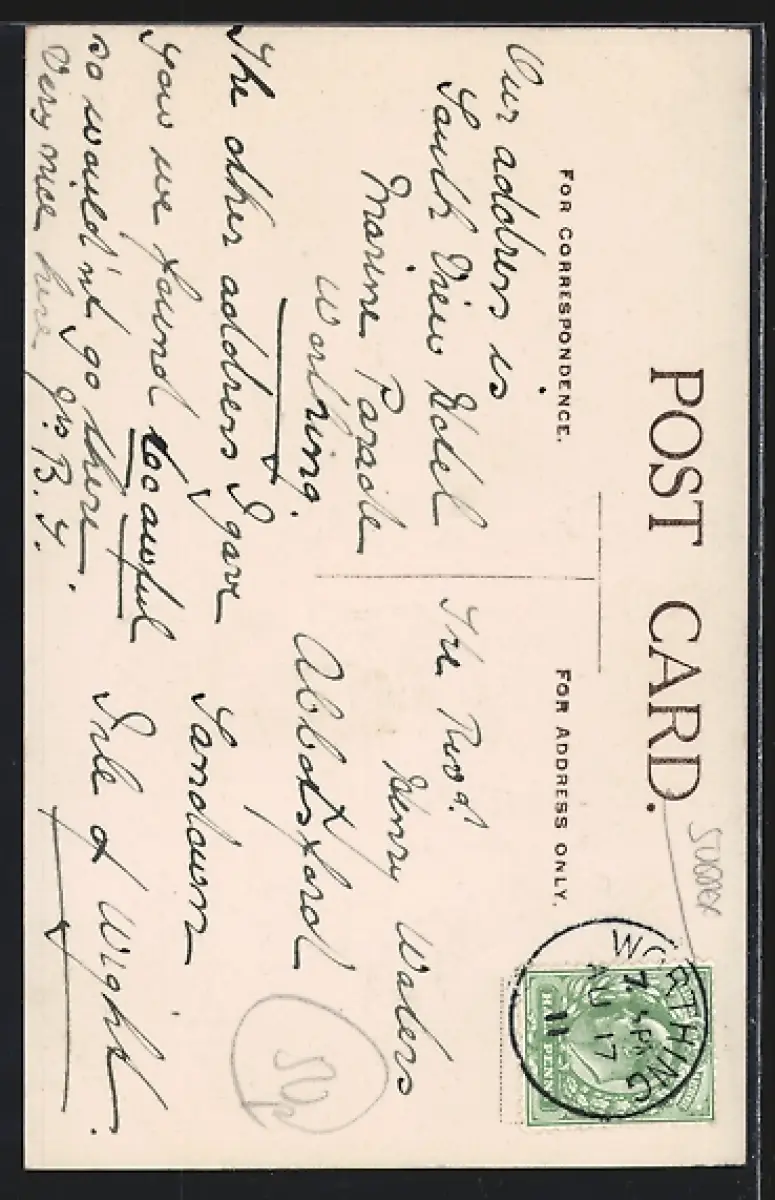 POST CARD.
FOR CORRESPONDENCE.
Our address is
South View Hotel
Marine Parade
Worthing.
The other address I gave
you we found too awful
so would'nt go there.
Very nice here. B. Y.
FOR ADDRESS ONLY.
The Revd.
Henry Waters
Abbotsford
Sandown
Isle of Wight.
SUSSEX
WORTHING
7 PM
AU 17
11
HALF PENNY